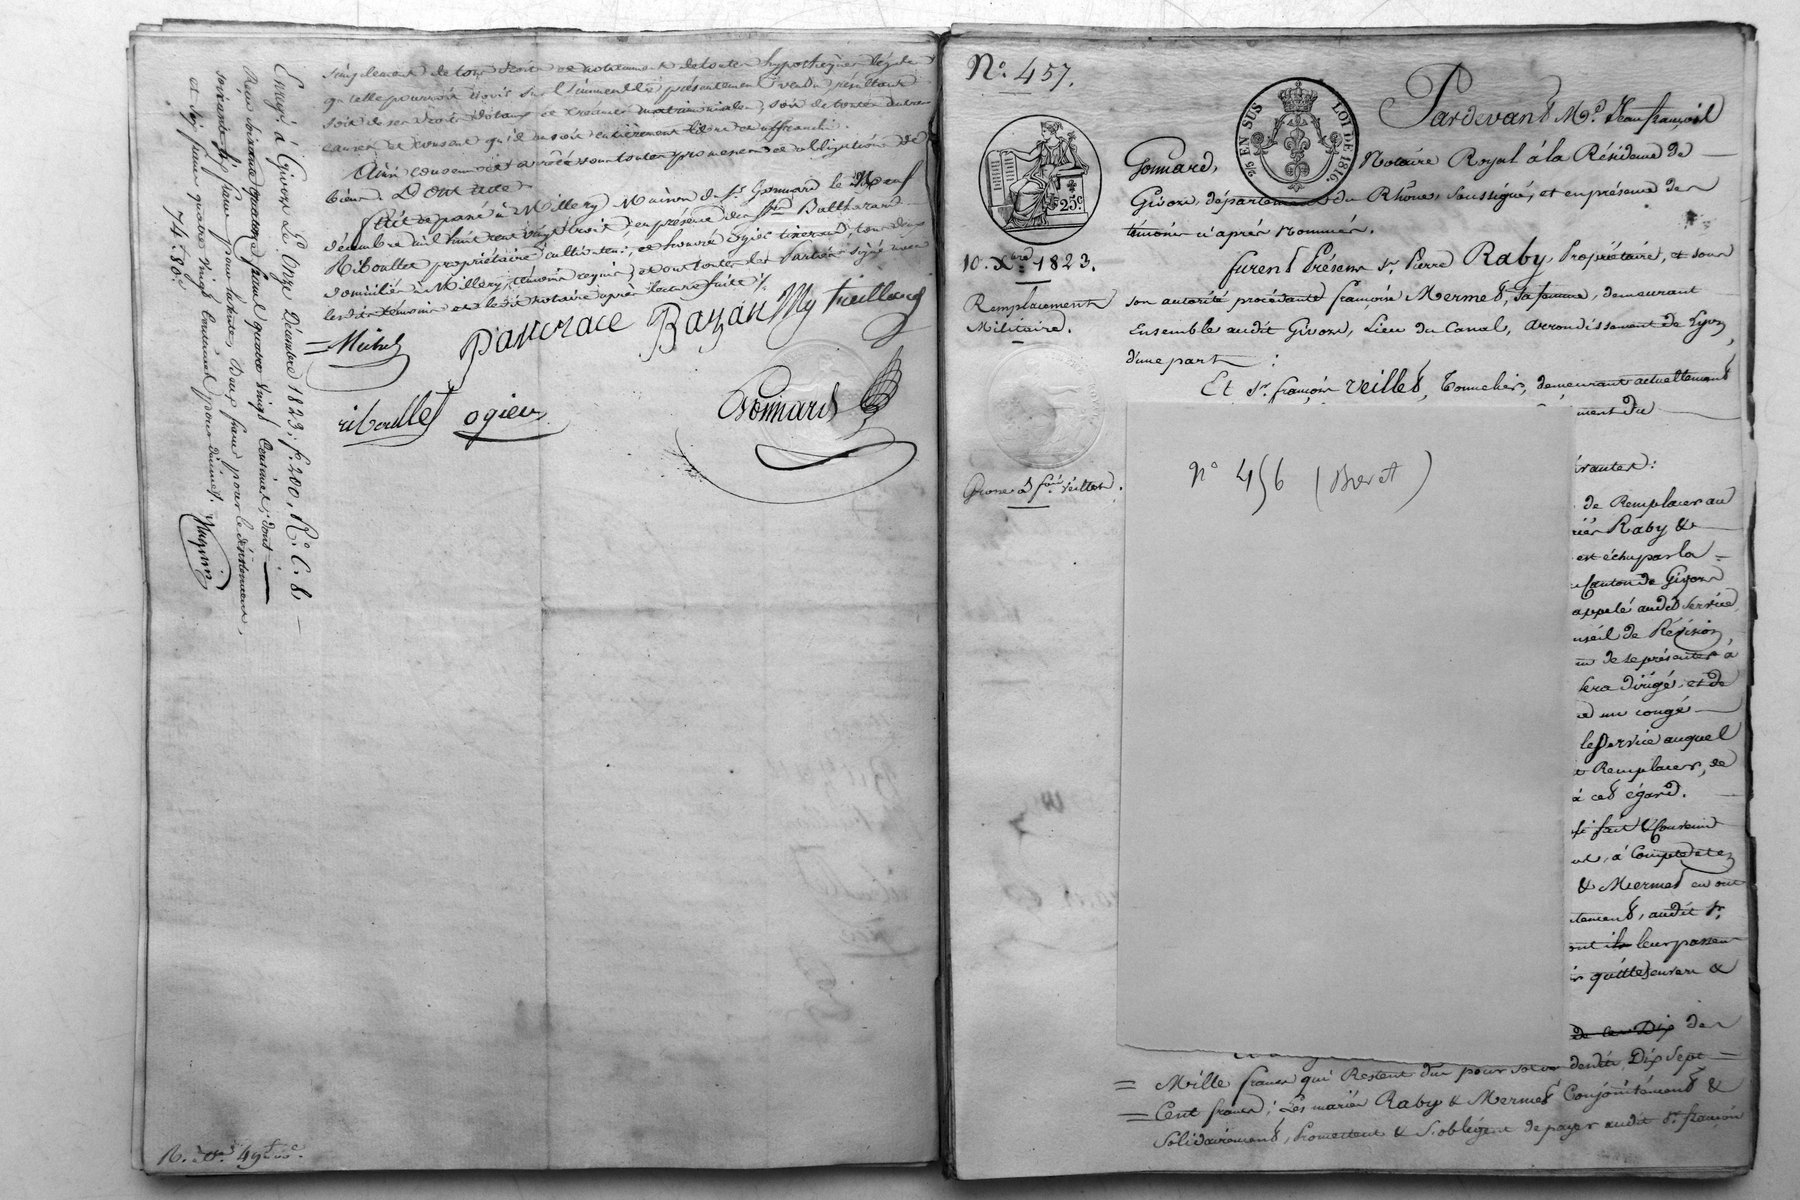 simplement de tous droits et notamment de toutes hypothèques légales
qu'elle pourroit avoir sur l'immeuble présentement vendu résultant
soit de ses droits dotaux et créances matrimoniales, soit de toutes autres
causes et qu'il en soit entièrement libre et affranchi.
Ainsi convenu et arrêté sous toutes promesses et obligations de
biens. Dont acte.
Fait et passé à Millery Maison du Sr. Gonnard le Neuf
décembre mil huit cent vingt trois, en présence des Srs. Balthazard
Riboullet propriétaire cultivateur, et honoré ogier tisserand, tous deux
domiciliés à Millery, témoins requis, et ont toutes les Parties signé avec
lesdits témoins et led. Sr. notaire après lecture faite ./.
Michel
Pancrace Bazan My treillard
riboullet ogier
Gonnard
Enreg. à Givors Le Onze Décembre 1823; f.° 200, R.° C. 8
Reçu soixante quatorze francs quatre vingt Centimes; dont
soixante six francs pour la vente, Deux francs pour le désistement,
et Six francs quatre vingt Centimes pour décime.
74. 80c
N.° 457.
25c
2/5 EN SUS
LOI DE 1816
10. Xbre 1823.
Remplacement
Militaire.
Grosse à fois Veillet.
Pardevant Me. Jean françois
Gonnard, Notaire Royal à la Résidence de
Givors, département du Rhône, soussigné, et en présence des
témoins ci après nommés.
furent Présens Sr. Pierre Raby, Propriétaire, et sous
son autorité procédante françoise Mermet, sa femme, demeurant
Ensemble audit Givors, Lieu du Canal, arrondissement de Lyon,
d'une part ;
Et Sr. françois Veillet, Tonnelier, demeurant actuellement
ment du
ivantes:
de Remplacer au
riés Raby &
est échu par la
Canton de Givors
appelé audit service
nseil de Révision,
de se présenter à
sera dirigé, et de
un congé
le service auquel
Remplacer, de
à cet égard.
fait & Convenu
à Compte de
& Mermet en ont
tement, audit Sr.
ont ils leur passent
quittes envers &
de ces Dix des
N° 456 (Brevet)
Mille francs qui Restent dus pour solde desdits Dix sept
Cent francs; Les mariés Raby & Mermet Conjointement &
Solidairement, Promettent & S'obligent de payer audit Sr. françois